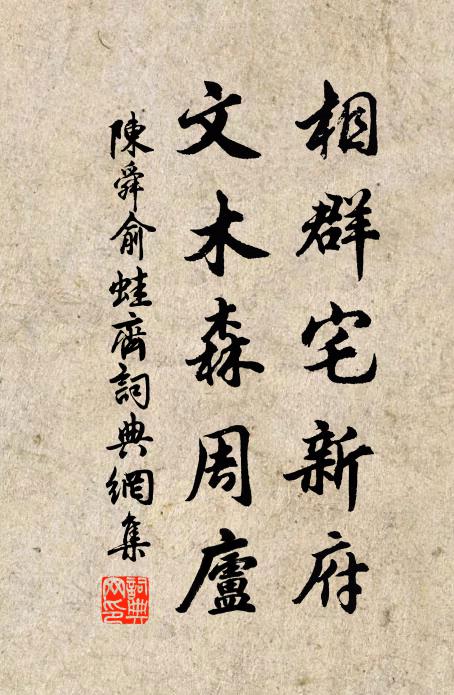 相群宅新府
文木森周廬
陳舜俞蛙齋詞典網集
詞典網印